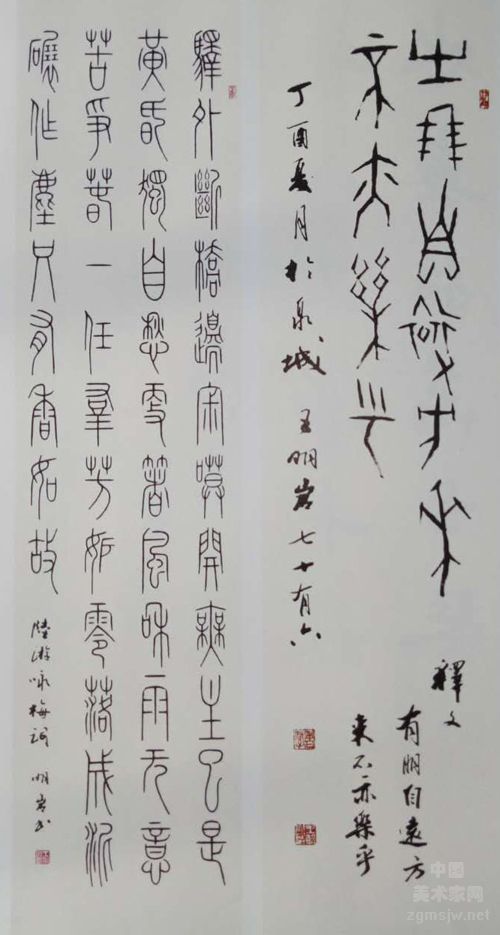 有朋自遠方來
不亦樂乎
釋文
有朋自遠方
来不亦樂乎
丁酉夏月於泉城 王明岩七十有六
驛外斷橋邊寂寞開無主已是
黃昏獨自愁更著風和雨无意
苦爭春一任羣芳妒零落成泥
碾作塵只有香如故
陸游咏梅詞 明岩书
中国
美术家网
zgmsjw.net